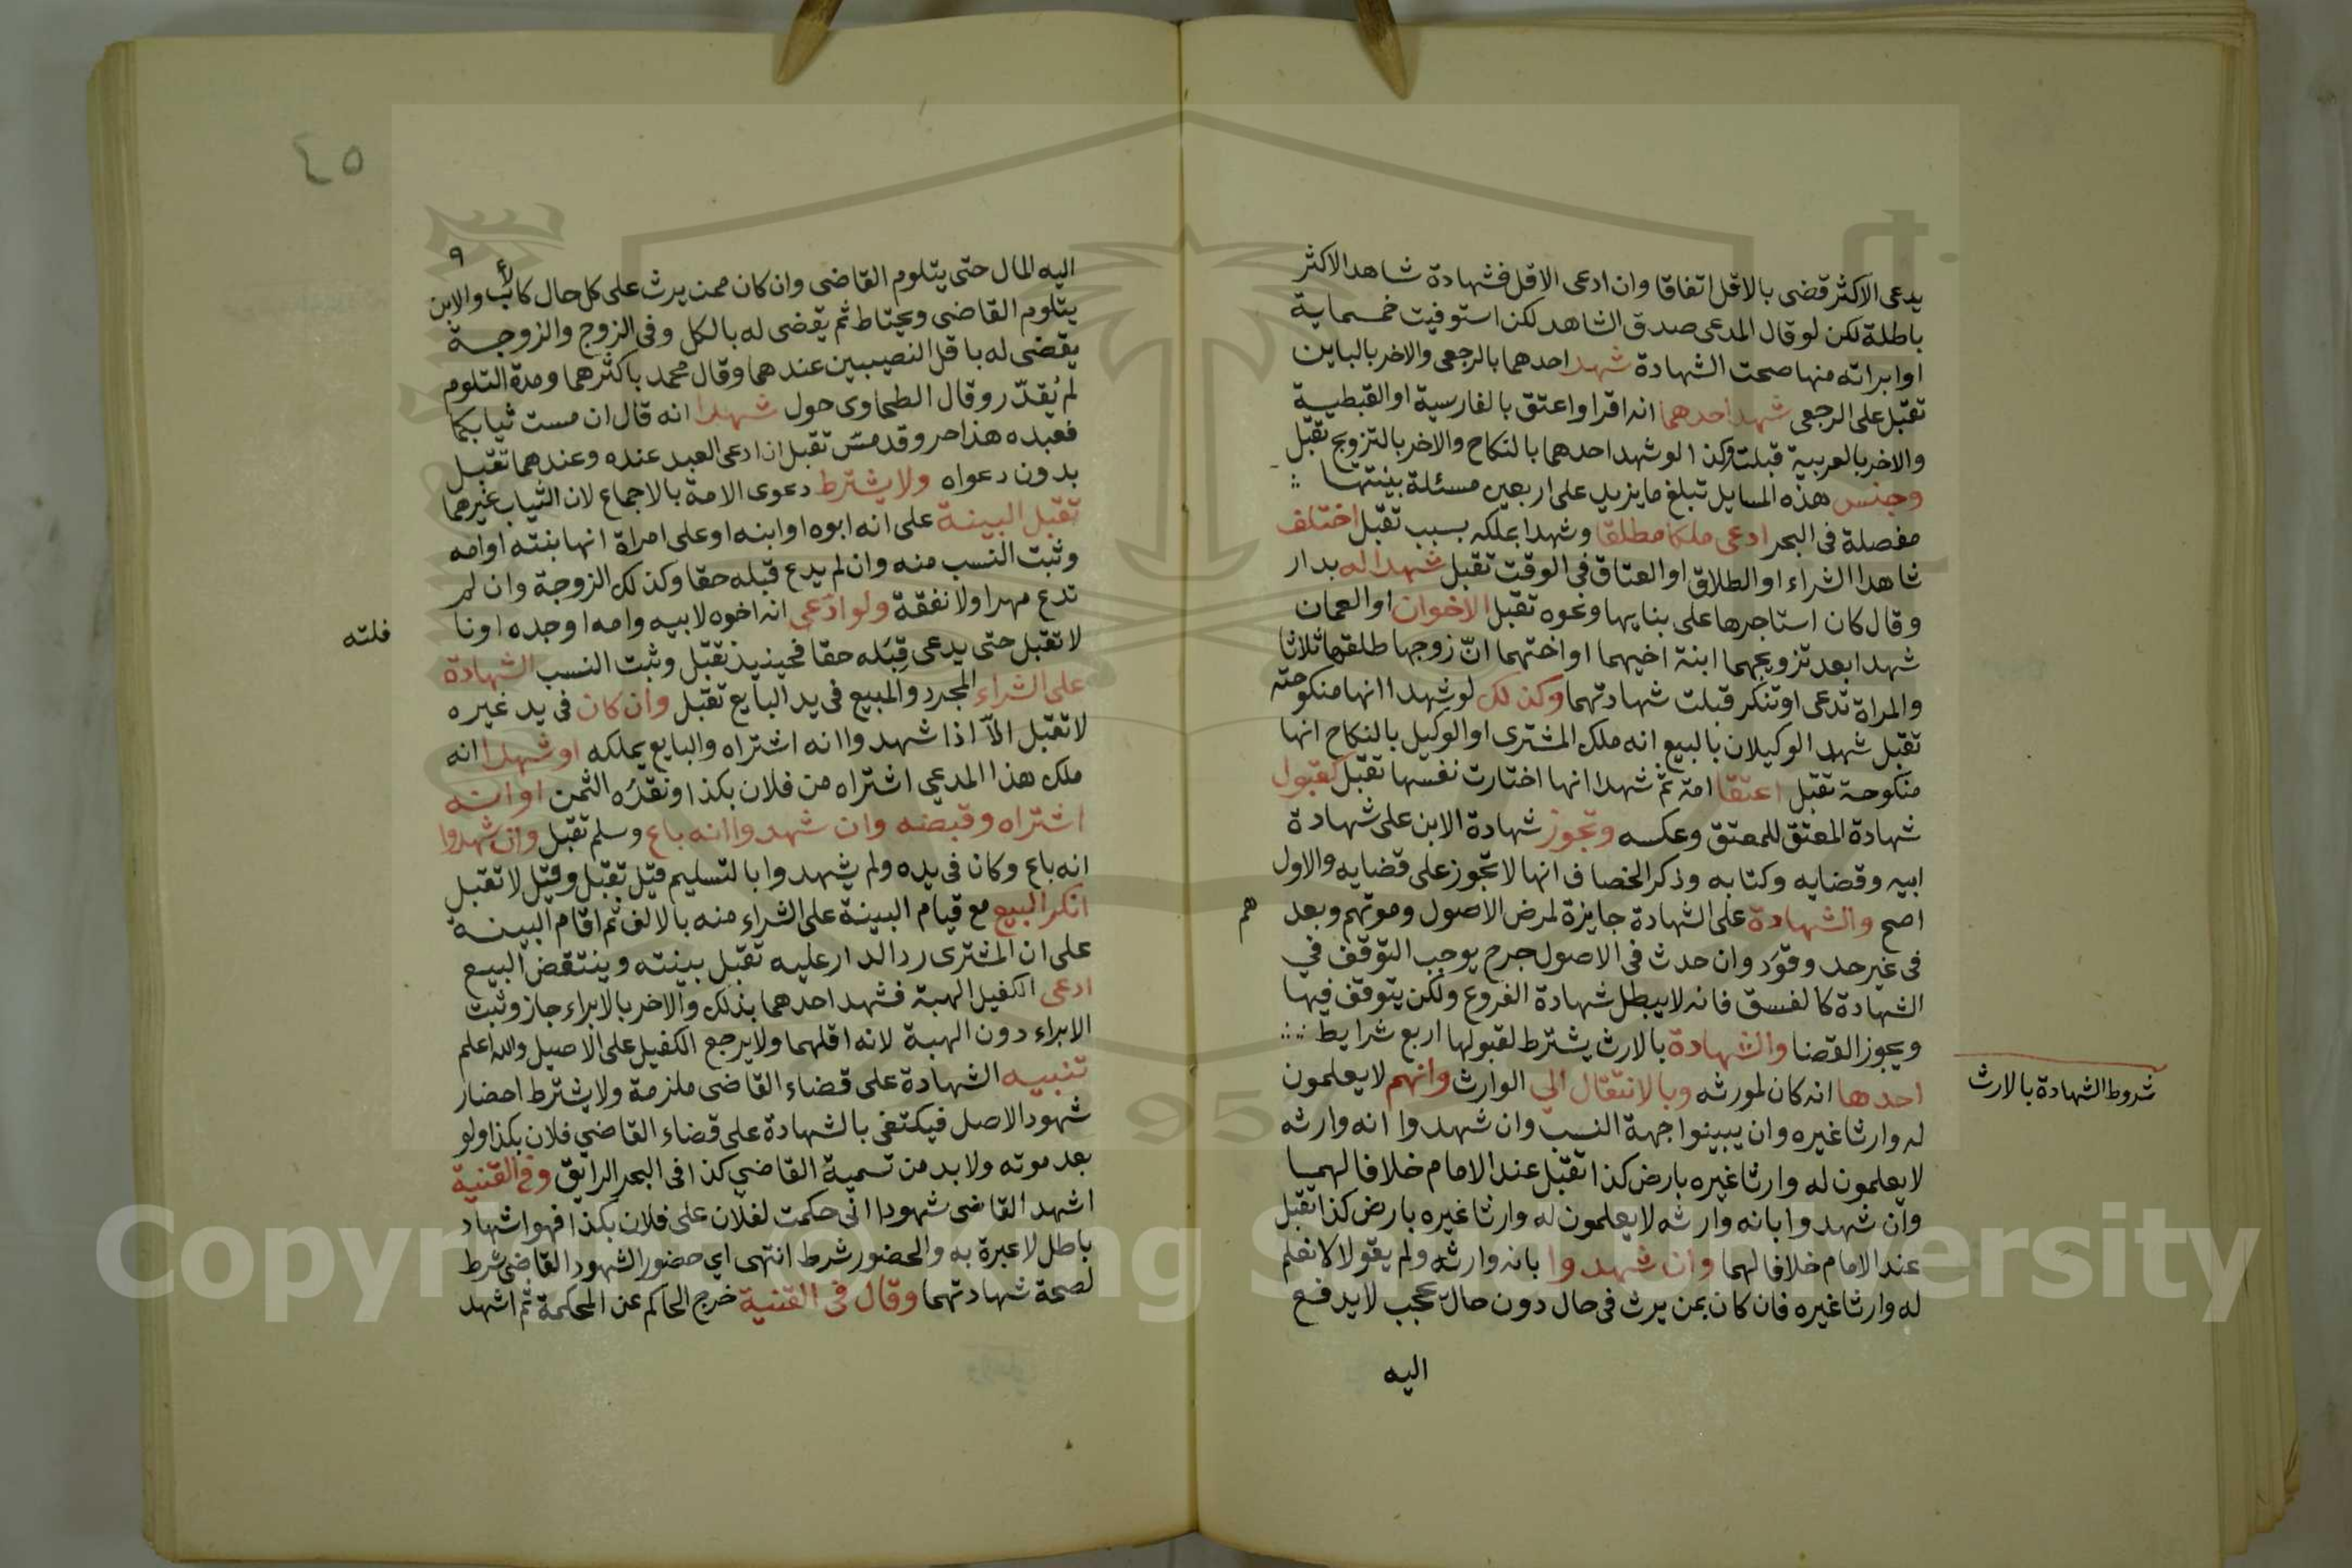 يدعى الاكثر قضى بالاقل اتفاقا وان ادعى الاقل فشهادة شاهد الاكثر
باطلة لكن لو قال المدعى صدق الشاهد لكن استوفيت خمسماية
او ابراته منها صحت الشهادة شهد احدهما بالرجعى والاخر بالباين
تقبل على الرجعى شهد احدهما انه اقر او اعتق بالفارسية او القبطية
والاخر بالعربية قبلت وكذا لو شهد احدهما بالنكاح والاخر بالتزويج تقبل
وجنس هذه المسايل تبلغ ما يزيد على اربعين مسئلة بينتها
مفصلة فى البحر ادعى ملكا مطلقا وشهدا بملكه بسبب تقبل اختلف
شاهدا الشراء او الطلاق او العتاق فى الوقت تقبل شهدا له بدار
وقال كان استاجرها على بنايها ونحوه تقبل الاخوان او العمان
شهدا بعد تزويجهما ابنة اخيهما او اختهما ان زوجها طلقها ثلاثا
والمراة تدعى او تنكر قبلت شهادتهما وكذلك لو شهدا انها منكوحته
تقبل شهد الوكيلان بالبيع انه ملك المشترى او الوكيل بالنكاح انها
منكوحة تقبل اعتقا امة ثم شهدا انها اختارت نفسها تقبل كقبول
شهادة المعتق للمعتق وعكسه وتجوز شهادة الابن على شهادة
ابيه وقضايه وكتابه وذكر الخصاف انها لا تجوز على قضايه والاول
اصح والشهادة على الشهادة جايزة لمرض الاصول وموتهم وبعد هم
فى غير حد وقود وان حدث فى الاصول جرح يوجب التوقف في
الشهادة كالفسق فانه لا يبطل شهادة الفروع ولكن يتوقف فيها
ويجوز القضا والشهادة بالارث يشترط لقبولها اربع شرايط
احدها انه كان لمورثه وبالانتقال الي الوارث وانهم لا يعلمون
شروط الشهادة بالارث
له وارثا غيره وان يبينوا جهة النسب وان شهدوا انه وارثه
لا يعلمون له وارثا غيره بارض كذا تقبل عند الامام خلافا لهما
وان شهدوا بانه وارثه لا يعلمون له وارثا غيره بارض كذا تقبل
عند الامام خلافا لهما وان شهدوا بانه وارثه ولم يقولا لا نعلم
له وارثا غيره فان كان بمن يرث فى حال دون حال عجب لا يدفع
اليه
٤٥
٩
اليه المال حتى يتلوم القاضى وان كان ممن يرث على كل حال كالاب والابن
يتلوم القاضي ويحتاط ثم يقضى له بالكل وفى الزوج والزوجة
يقضى له باقل النصيبين عندهما وقال محمد باكثرهما ومدة التلوم
لم يُقدّر وقال الطحاوى حول شهدا انه قال ان مست ثيابكما
فعبده هذا حر وقد مسّ تقبل ان ادعى العبد عنده وعندهما تقبل
بدون دعواه ولا يشترط دعوى الامة بالاجماع لان الثياب غيرهما
تقبل البينة على انه ابوه او ابنه او على امراة انها بنته او امه
وثبت النسب منه وان لم يدع قبله حقا وكذلك الزوجة وان لم
تدع مهرا ولا نفقة ولو ادعى انه اخوه لابيه وامه او جده او نا
فلته
لا تقبل حتى يدعى قبله حقا فحينيذ تقبل وثبت النسب الشهادة
على الشراء المجرد والمبيع فى يد البايع تقبل وان كان فى يد غيره
لا تقبل الا اذا شهدوا انه اشتراه والبايع يملكه او شهدا انه
ملك هذا المدعي اشتراه من فلان بكذا ونقده الثمن او انه
اشتراه وقبضه وان شهدوا انه باع وسلم تقبل وان شهدوا
انه باع وكان فى يده ولم يشهدوا بالتسليم قيل تقبل وقيل لا تقبل
انكر البيع مع قيام البينة على الشراء منه بالالف ثم اقام البينة
على ان المشترى رد الدار عليه تقبل بينته وينتقض البيع
ادعى الكفيل الهبة فشهد احدهما بذلك والاخر بالابراء جاز وثبت
الابراء دون الهبة لانه اقلهما ولا يرجع الكفيل على الاصيل والله اعلم
تنبيه الشهادة على قضاء القاضى ملزمة ولا يشترط احضار
شهود الاصل فيكتفى بالشهادة على قضاء القاضي فلان بكذا ولو
بعد موته ولا بد من تسمية القاضي كذا فى البحر الرايق وفى القنية
اشهد القاضى شهودا انى حكمت لفلان على فلان بكذا فهو اشهاد
باطل لا عبرة به والحضور شرط انتهى اي حضور الشهود القاضى شرط
لصحة شهادتهما وقال فى القنية خرج الحاكم عن المحكمة ثم اشهد
Copyright © King Saud University